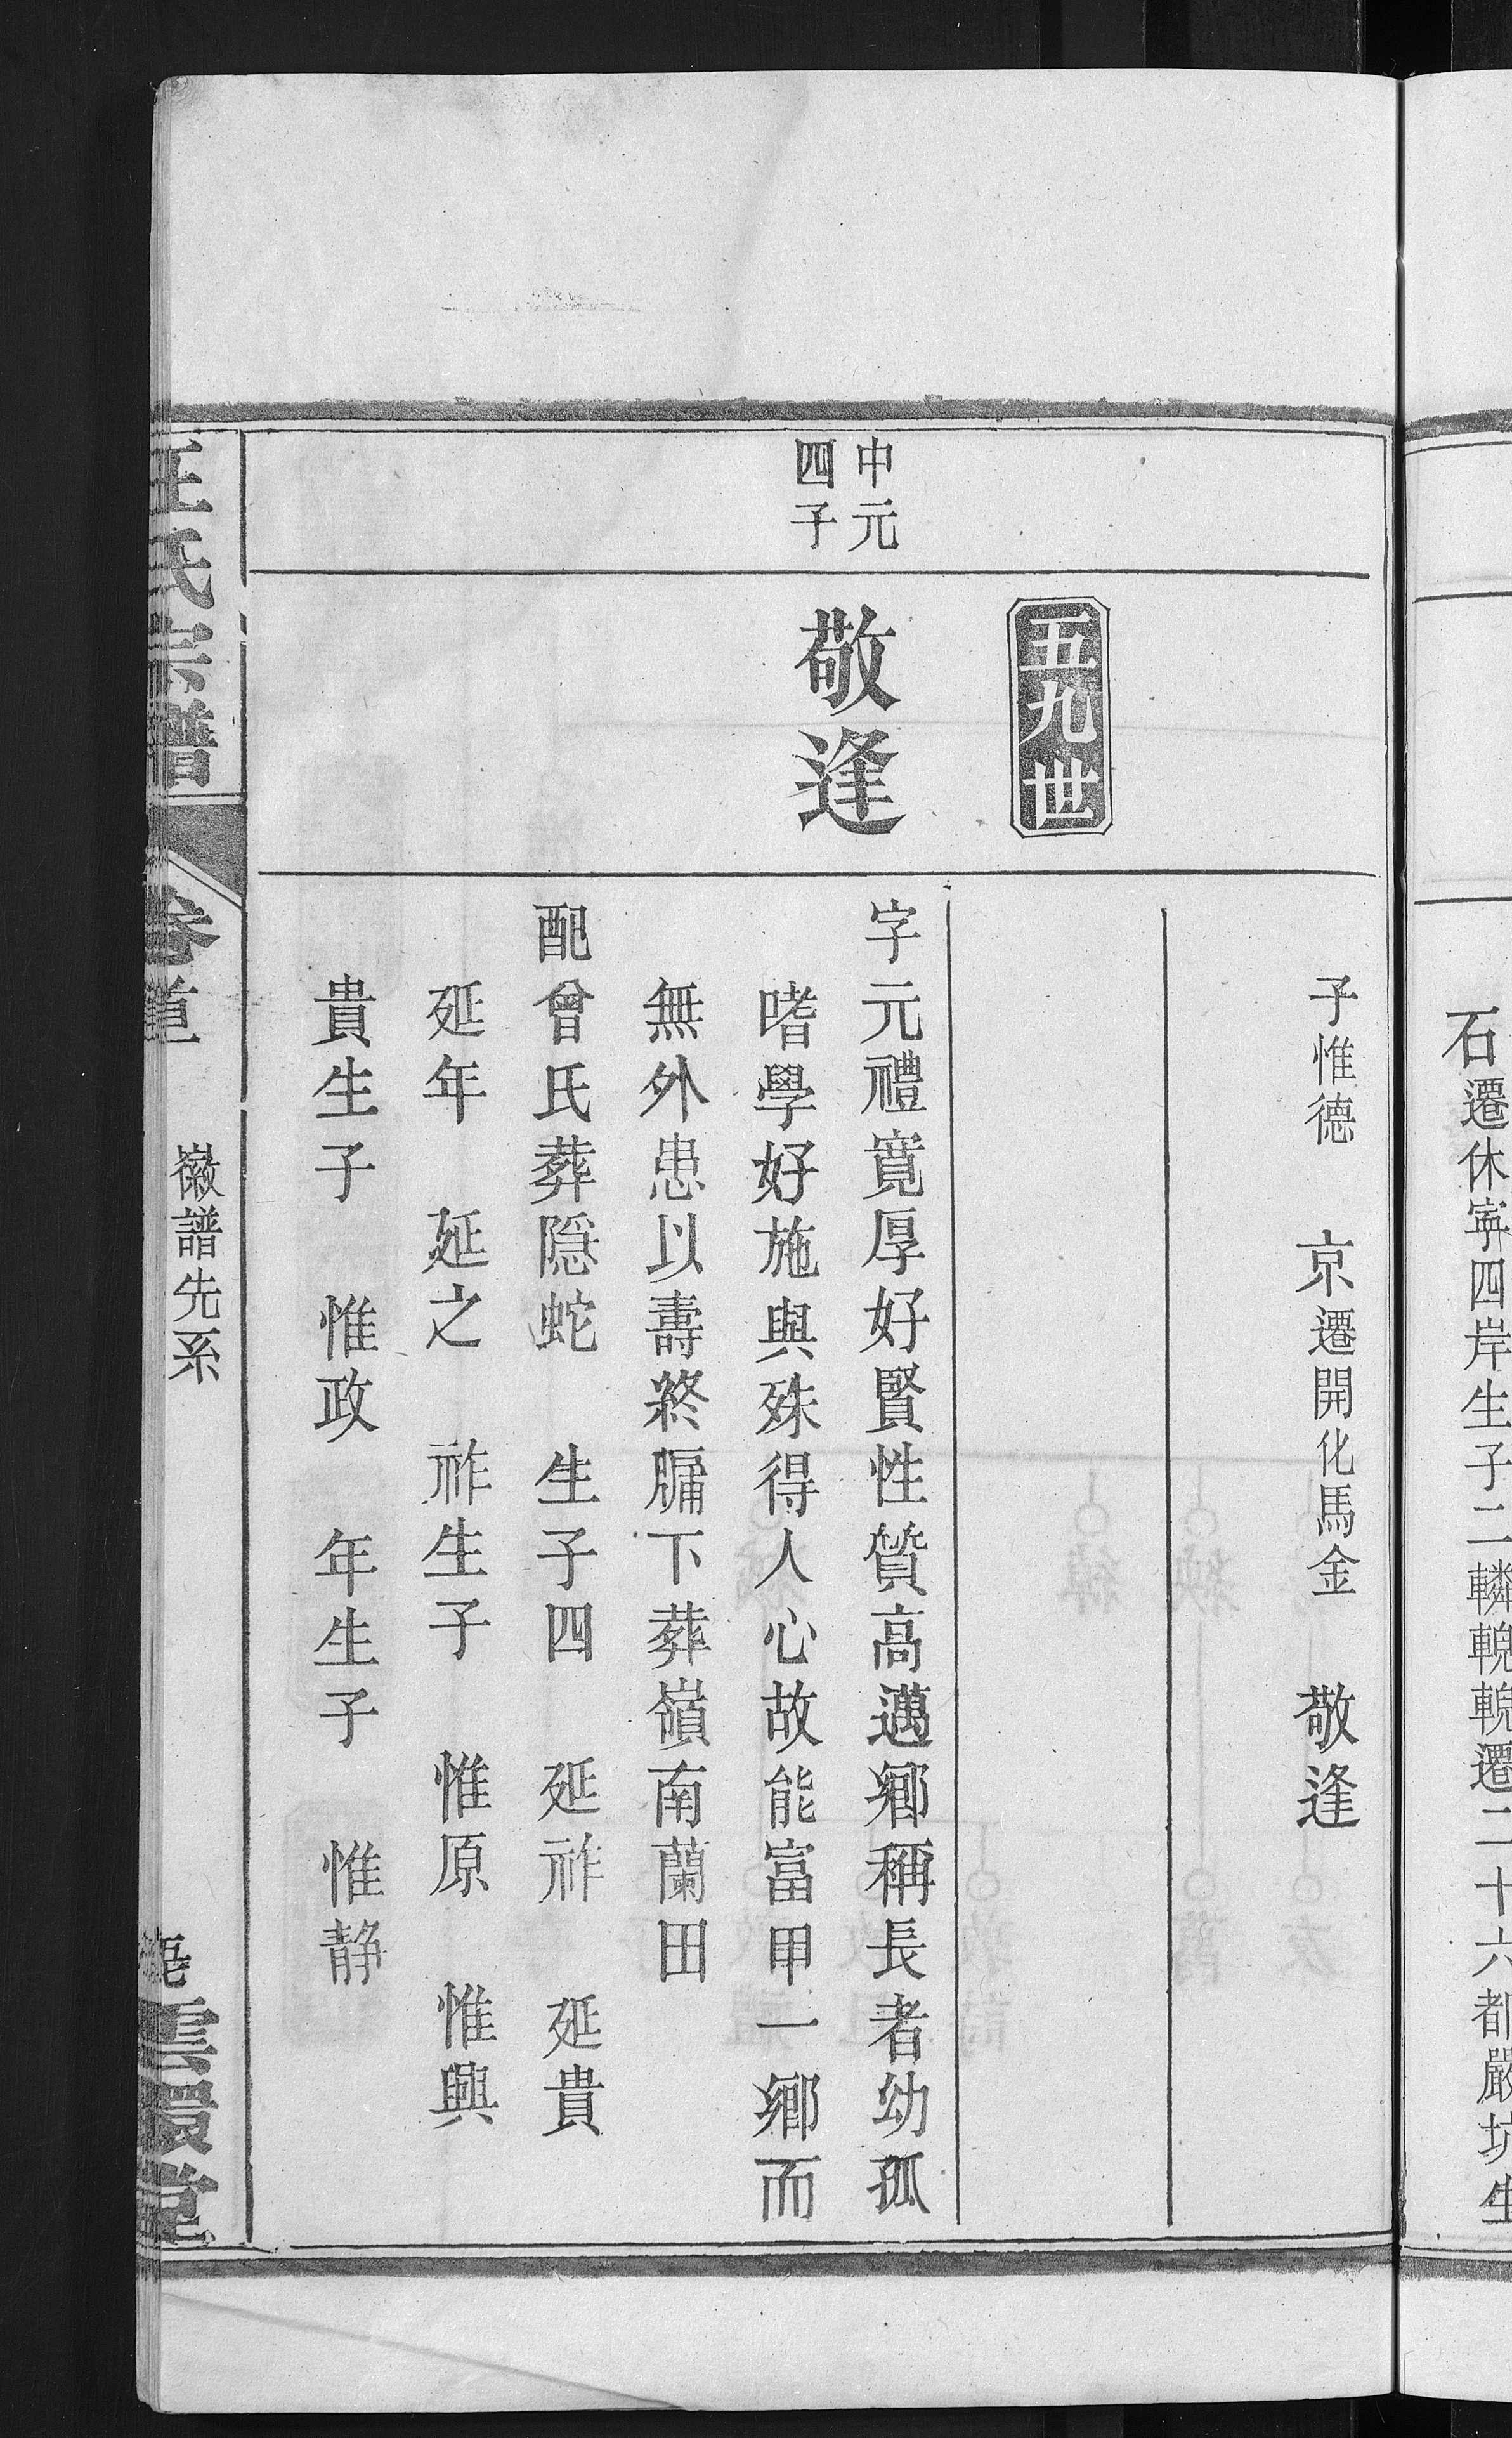 石遷休寧四岸生子二轔輗輗遷二十六都嚴坑生
子惟德　京遷開化馬金　敬逢
五九世
中元
四子
敬逢
字元禮寬厚好賢性質高邁鄉稱長者幼孤
嗜學好施與殊得人心故能富甲一鄉而
無外患以壽終牖下葬嶺南蘭田
配曾氏葬隱蛇　生子四　延祚　延貴
延年　延之　祚生子　惟原　惟興
貴生子　惟政　年生子　惟静
汪氏宗譜
卷首
徽譜先系
雲環堂